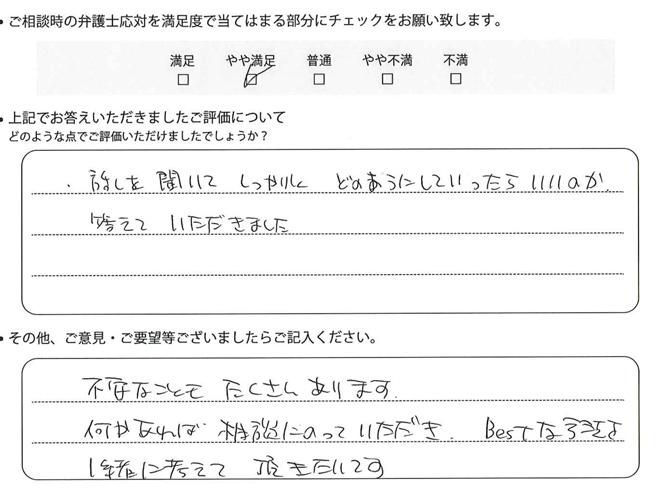 • ご相談時の弁護士応対を満足度で当てはまる部分にチェックをお願い致します。
満足 やや満足 普通 やや不満 不満
□ ☑ □ □ □
• 上記でお答えいただきましたご評価について
どのような点でご評価いただけましたでしょうか？
・話しを聞いて しっかりと どのようにしていったらいいのか、
答えて いただきました
• その他、ご意見・ご要望等ございましたらご記入ください。
不安なことも たくさん あります。
何かあれば 相談にのって いただき、Bestな方法を
1緒に考えて 頂きたいです